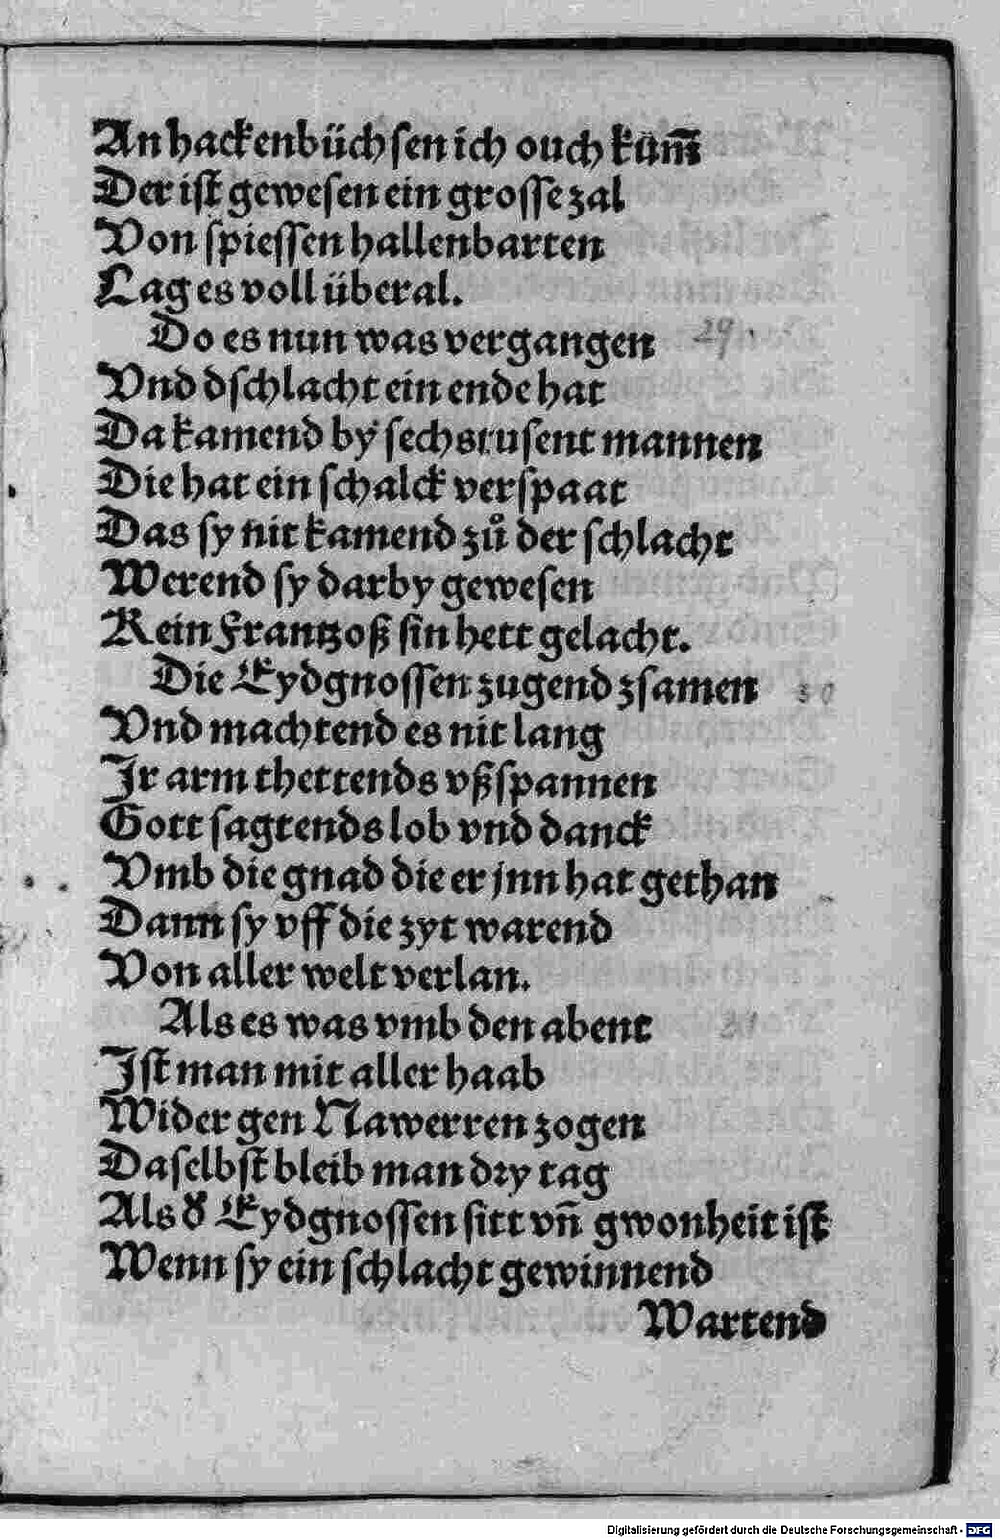 An hackenbüchsen ich ouch kum̃
Der ist gewesen ein grosse zal
Von spiessen hallenbarten
Lag es voll überal.
Do es nun was vergangen 29
Vnd dschlacht ein ende hat
Da kamend by sechs tusent mannen
Die hat ein schalck verspaat
Das sy nit kamend zů der schlacht
Werend sy darby gewesen
Kein Frantzoß sin hett gelacht.
Die Eydgnossen zugend zsamen 30
Vnd machtend es nit lang
Jr arm thettends vßspannen
Gott sagtends lob vnd danck
Vmb die gnad die er jnn hat gethan
Dann sy vff die zyt warend
Von aller welt verlan.
Als es was vmb den abent 31
Jst man mit aller haab
Wider gen Nawerren zogen
Daselbst bleib man dry tag
Als d' Eydgnossen sitt vn̄ gwonheit ist
Wenn sy ein schlacht gewinnend
Wartend
Digitalisierung gefördert durch die Deutsche Forschungsgemeinschaft - DFG